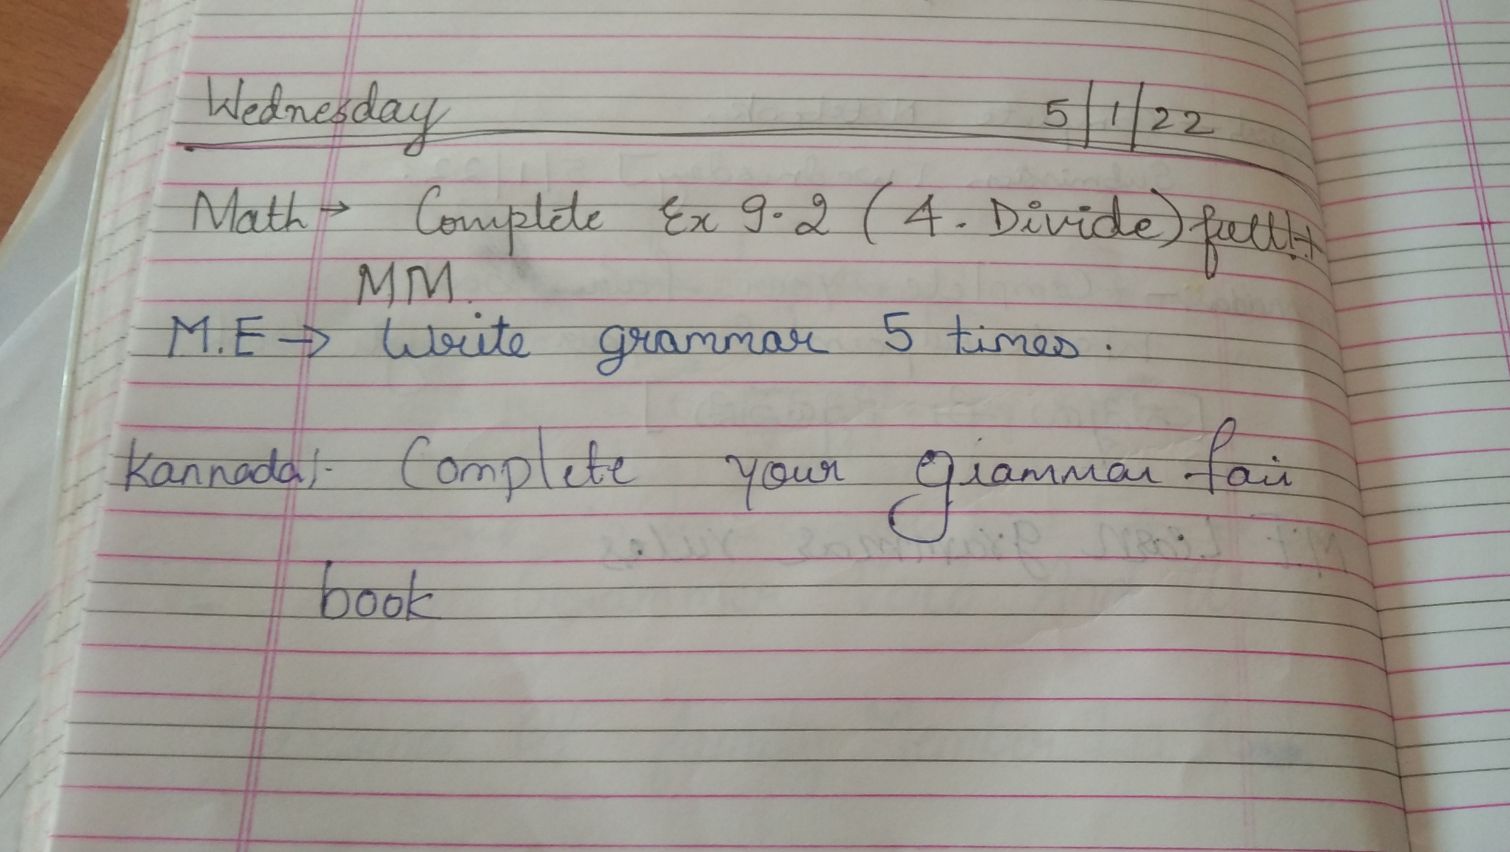 Wednesday 5/1/22
Math → Complete Ex 9.2 (4. Divide) full!+
MM.
M.E → Write grammar 5 times.
Kannada:- Complete your grammar fair
book